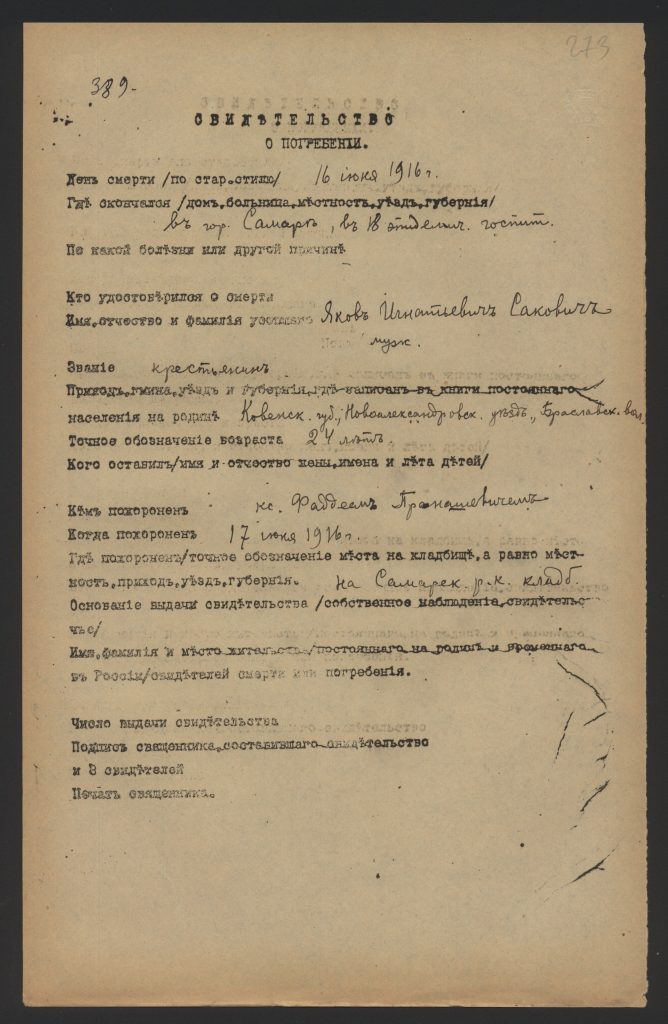 273
389.
СВИДѢТЕЛЬСТВО
О ПОГРЕБЕНІИ.
День смерти /по стар.стилю/ 16 іюня 1916 г.
Гдѣ скончался /домъ,больница,мѣстность,уѣздъ,губернія/
въ гор. Самарѣ, въ 18 эпидемич. госпит.
По какой болѣзни или другой причинѣ
Кто удостовѣрился о смерти
Имя,отчество и фамилія Яковъ Игнатьевичъ Саковичъ
муж.
Званіе крестьянинъ
Приходъ,гмина,уѣздъ и губернія,гдѣ записанъ въ книги постояннаго
населенія на родинѣ Ковенск. губ., Новоалександровск. уѣздъ, Браславск. вол.
Точное обозначеніе возраста 24 лѣтъ.
Кого оставилъ/имя и отчество жены,имена и лѣта дѣтей/
Кѣмъ похороненъ кс. Фаддеемъ
Когда похороненъ 17 іюня 1916 г.
Гдѣ похороненъ/точное обозначеніе мѣста на кладбищѣ,а равно мѣст-
ность,приходъ,уѣздъ,губернія. на Самарск. р.-к. кладб.
Основаніе выдачи свидѣтельства /собственное наблюденіе,свидѣтельс
Имя,фамилія и мѣсто жительства/постояннаго на родинѣ и временнаго
въ Россіи/свидѣтелей смерти или погребенія.
Число выдачи свидѣтельства
Подпись священника,составившаго свидѣтельство
и 3 свидѣтелей
Печать священника.